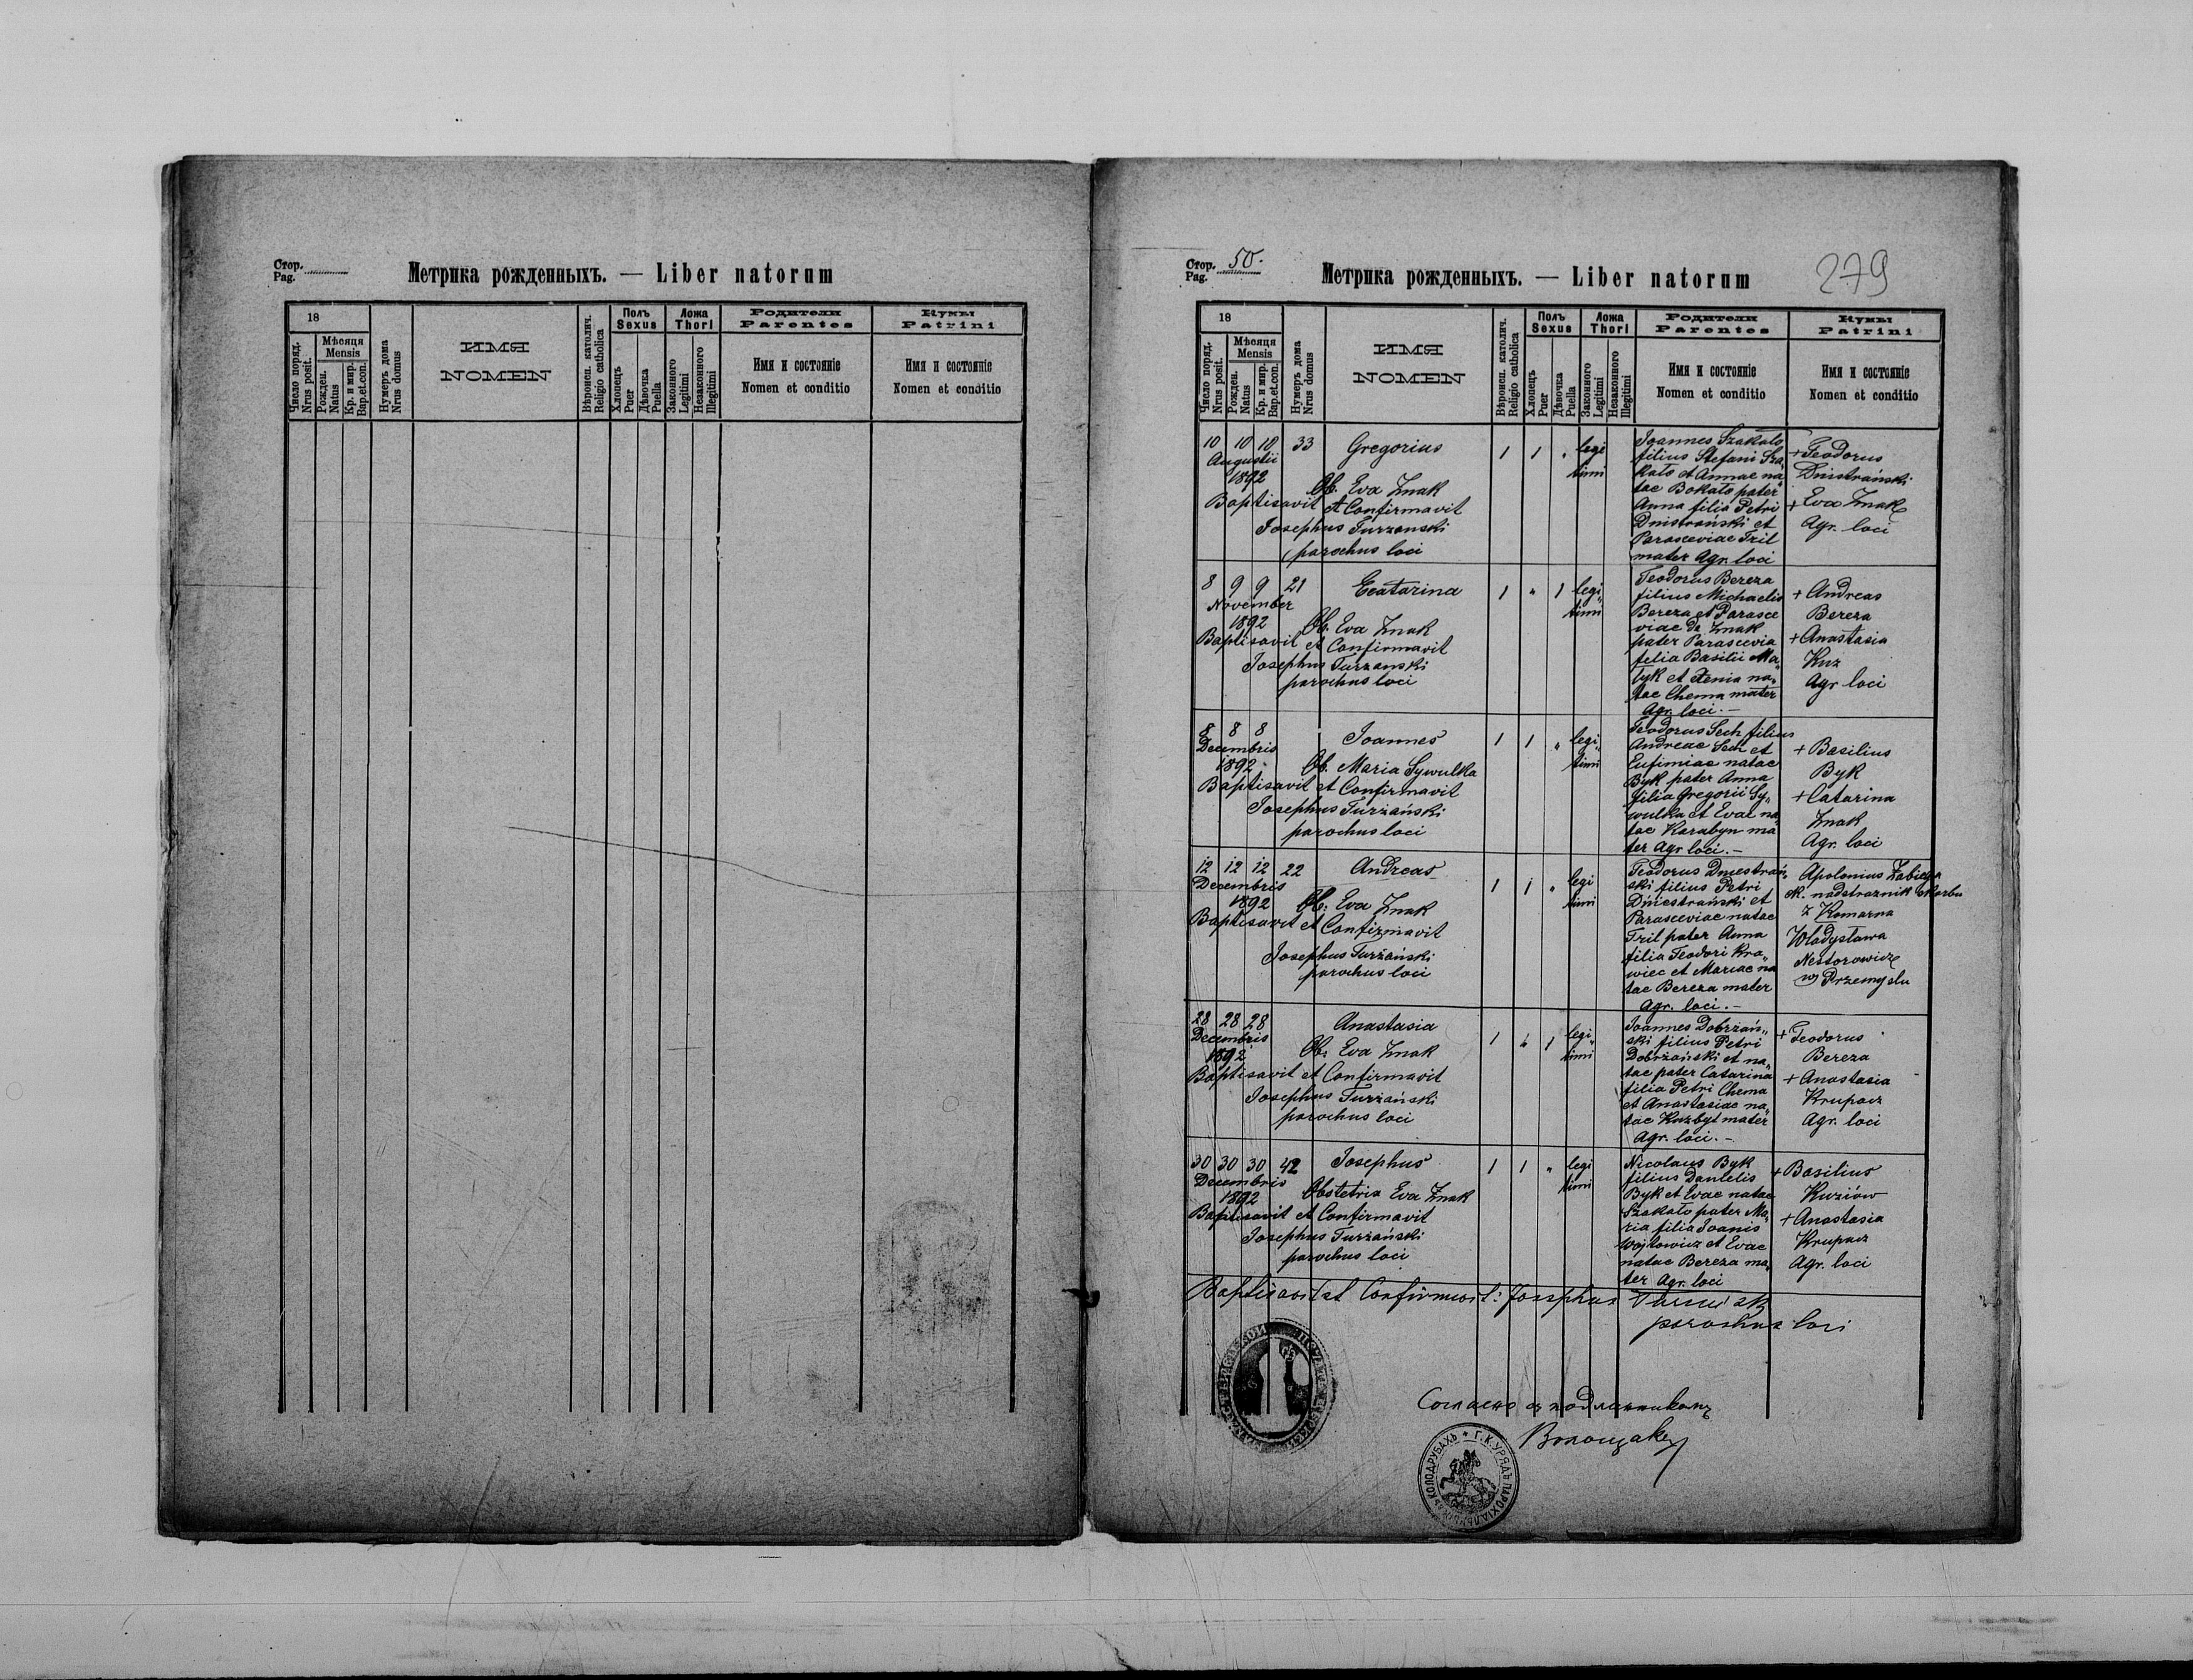 Стор.
Pag.
Метрика рожденныхъ. — Liber natorum
18
Число поряд.
Nrus posit.
Мѣсяця
Mensis
Рожден.
Natus
Кр. и мир.
Bap. et con.
Нумеръ дома
Nrus domus
ИМЯ
NOMEN
Вѣроисп. католич.
Religio catholica
Полъ
Sexus
Хлопецъ
Puer
Дѣвочка
Puella
Ложа
Thori
Законного
Legitimi
Незаконного
Illegitimi
Родители
Parentes
Имя и состоянiе
Nomen et conditio
Кумы
Patrini
Имя и состоянiе
Nomen et conditio
Стор. 50.
Pag.
Метрика рожденныхъ. — Liber natorum
279
18
Число поряд.
Nrus posit.
Мѣсяця
Mensis
Рожден.
Natus
Кр. и мир.
Bap. et con.
Нумеръ дома
Nrus domus
ИМЯ
NOMEN
Вѣроисп. католич.
Religio catholica
Полъ
Sexus
Хлопецъ
Puer
Дѣвочка
Puella
Ложа
Thori
Законного
Legitimi
Незаконного
Illegitimi
Родители
Parentes
Имя и состоянiе
Nomen et conditio
Кумы
Patrini
Имя и состоянiе
Nomen et conditio
10 10 10 33 Gregorius 1 1 "
Augustii
1892
Ob. Eva Znak
Baptisavit et Confirmavit
Josephus Turzanski
parochus loci
legi
timi
Joannes Szakalo
filius Stefani Sza„
kalo et Annae na„
tae Bokalo pater
Anna filia Petri
Dnistrański et
Parasceviae Tril
mater Agr. loci
+ Teodorus
Dnistrański
+ Eva Znak
Agr. loci
8 9 9 21 Ecatarina 1 " 1
November
1892
Ob. Eva Znak
Baptisavit et Confirmavit
Josephus Turzanski
parochus loci
legi„
timi
Teodorus Bereza
filius Michaelis
Bereza et Parasce
viae de Znak
pater Parascevia
felia Basilii Ma„
tyk et Xenia na„
tae Chema mater
Agr. loci. —
+ Andreas
Bereza
+ Anastasia
Kuz
Agr loci
8 8 8 Joannes 1 1 "
Decembris
1892
Ob. Maria Sywulka
Baptisavit et Confirmavit
Josephus Turzański
parochus loci
legi„
timi
Teodorus Sech filius
Andreae Sech et
Eufimiae natae
Byk pater Anna
filia Gregorii Sy„
wulka et Evae na„
tae Karabyn ma
ter Agr loci. —
+ Basilius
Byk
+ Catarina
Znak
Agr. loci
12 12 12 22 Andreas 1 1 "
Decembris
1892
Ob. Eva Znak
Baptisavit et Confirmavit
Josephus Turzański
parochus loci
legi
timi
Teodorus Dniestrań„
ski filius Petri
Dniestrański et
Parasceviae natae
Tril pater Anna
filia Teodori Kra„
wiec et Mariae na
tae Bereza mater
Agr. loci. —
Apolonius
nadstraznik
z Komarna
Władysława
Nestorowicz
w Przemyslu
28 28 28 Anastasia 1 " 1
Decembris
1892
Ob. Eva Znak
Baptisavit et Confirmavit
Josephus Turzański
parochus loci
legi„
timi
Joannes Dobrzań„
ski filius Petri
Dobrzański et na„
tae pater Catarina
filia Petri Chema
et Anastasiae na„
tae Kuzbyt mater
Agr. loci. —
+ Teodorus
Bereza
+ Anastasia
Krupacz
Agr. loci
30 30 30 42 Josephus 1 1 "
Decembris
1892
Obstetrix Eva Znak
Baptisavit et Confirmavit
Josephus Turzański
parochus loci
legi
timi
Nicolaus Byk
filius Danielis
Byk et Evae natae
Szakalo pater Ma„
ria filia Joanis
Wojtowicz et Evae
natae Bereza ma„
ter Agr. loci
+ Basilius
Kuziów
+ Anastasia
Krupacz
Agr. loci
Baptisavit et Confirmavit: Josephus
parochus loci
Согласно с подлинникомъ
Волощакъ
Г. К. УРЯДЪ ПАРОХІАЛЬНЫЙ КОЛОДРУБАХЪ